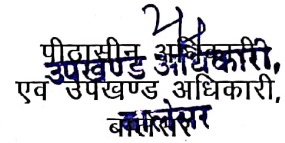 पीठासीन अधिकारी
उपखण्ड अधिकारी,
एवं उपखण्ड अधिकारी,
बालेसर